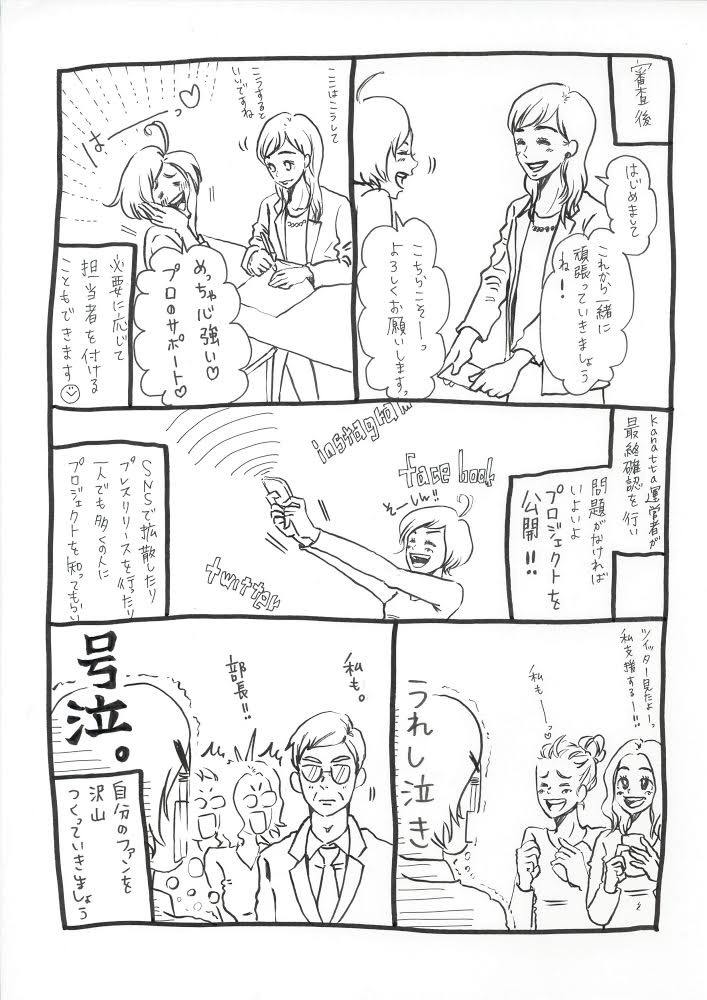 審査後
はじめまして
これから一緒に
頑張っていきましょう
ねー!
こちらこそーっ
よろしくお願いしますっ
ここはこうして
こうすると
いいですね
はーーっ♡
めっちゃ心強い♡
プロのサポート♡
必要に応じて
担当者を付ける
こともできます☺
kanatta運営者が
最終確認を行い
問題がなければ
いよいよ
プロジェクトを
公開!!
instagram
face book
そーしん!!
twitter
SNSで拡散したり
プレスリリースを行ったり
一人でも多くの人に
プロジェクトを知ってもらい
ツイッター見たよーっ
私支援するー!!
私もーーっ♡
うれし泣き
私も。
部長!!
号泣。
自分のファンを
沢山
つくっていきましょう